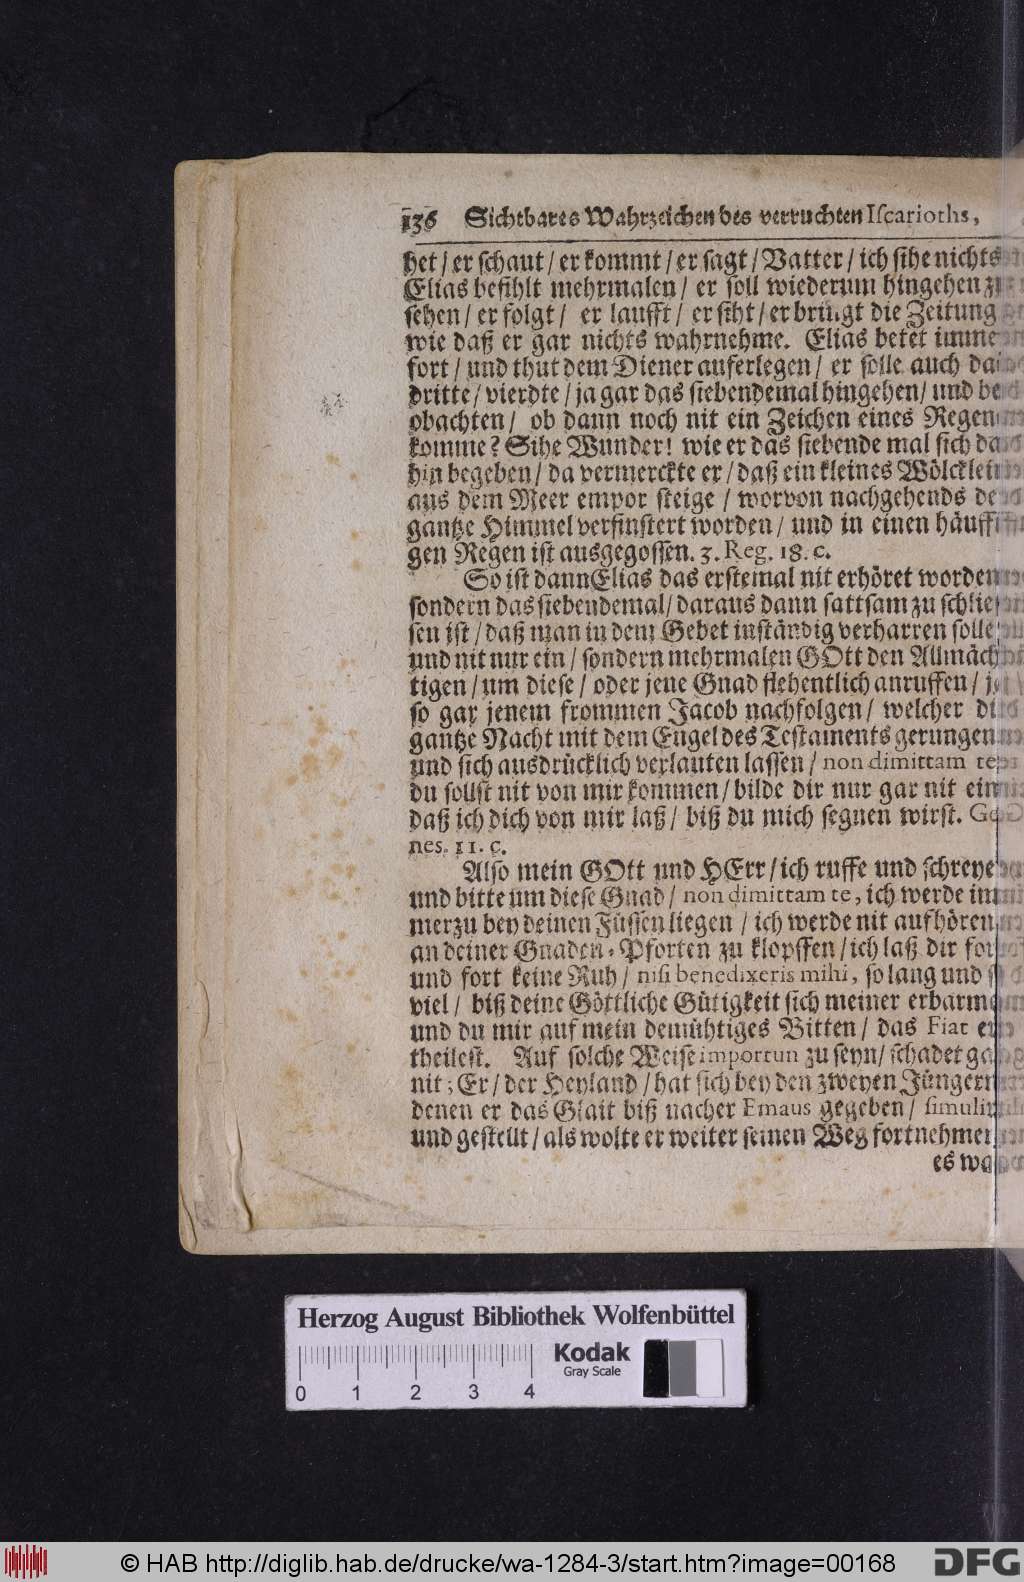 136 Sichtbares Wahrzeichen des verruchten Iſcarioths,
het / er ſchaut / er kommt / er ſagt / Vatter / ich ſihe nichts
Elias befihlt mehrmalen / er ſoll wiederum hingehen zu
ſehen / er folgt / er laufft / er ſiht / er bringt die Zeitung
wie daß er gar nichts wahrnehme. Elias betet immer
fort / und thut dem Diener auferlegen / er ſolle auch das
dritte / vierdte / ja gar das ſiebendemal hingehen / und be
obachten / ob dann noch nit ein Zeichen eines Regen
komme? Sihe Wunder! wie er das ſiebende mal ſich da
hin begeben / da vermerckte er / daß ein kleines Wölcklein
aus dem Meer empor ſteige / worvon nachgehends der
gantze Himmel verfinſtert worden / und in einen häuffi
gen Regen iſt ausgegoſſen. 3. Reg. 18. c.
So iſt dann Elias das erſtemal nit erhöret worden
ſondern das ſiebendemal / daraus dann ſattſam zu ſchlieſ
ſen iſt / daß man in dem Gebet inſtändig verharren ſolle
und nit nur ein / ſondern mehrmalen GOtt den Allmäch
tigen / um dieſe / oder jene Gnad flehentlich anruffen / ja
ſo gar jenem frommen Jacob nachfolgen / welcher die
gantze Nacht mit dem Engel des Teſtaments gerungen
und ſich ausdrücklich verlauten laſſen / non dimittam te
du ſollſt nit von mir kommen / bilde dir nur gar nit ein
daß ich dich von mir laß / biß du mich ſegnen wirſt. Ge
nes. 11. c.
Alſo mein GOtt und HErr / ich ruffe und ſchreye
und bitte um dieſe Gnad / non dimittam te, ich werde im
merzu bey deinen Füſſen liegen / ich werde nit aufhören
an deiner Gnaden-Pforten zu klopffen / ich laß dir fort
und fort keine Ruh / niſi benedixeris mihi, ſo lang und ſo
viel / biß deine Göttliche Gütigkeit ſich meiner erbarm
und du mir auf mein demühtiges Bitten / das Fiat er
theileſt. Auf ſolche Weiſe importun zu ſeyn / ſchadet gar
nit; Er / der Heyland / hat ſich bey den zweyen Jüngern
denen er das Glait biß nacher Emaus gegeben / ſimuli
und geſtellt / als wolte er weiter ſeinen Weg fortnehmen
es wa
Herzog August Bibliothek Wolfenbüttel
Kodak
Gray Scale
0 1 2 3 4
© HAB http://diglib.hab.de/drucke/wa-1284-3/start.htm?image=00168
DFG